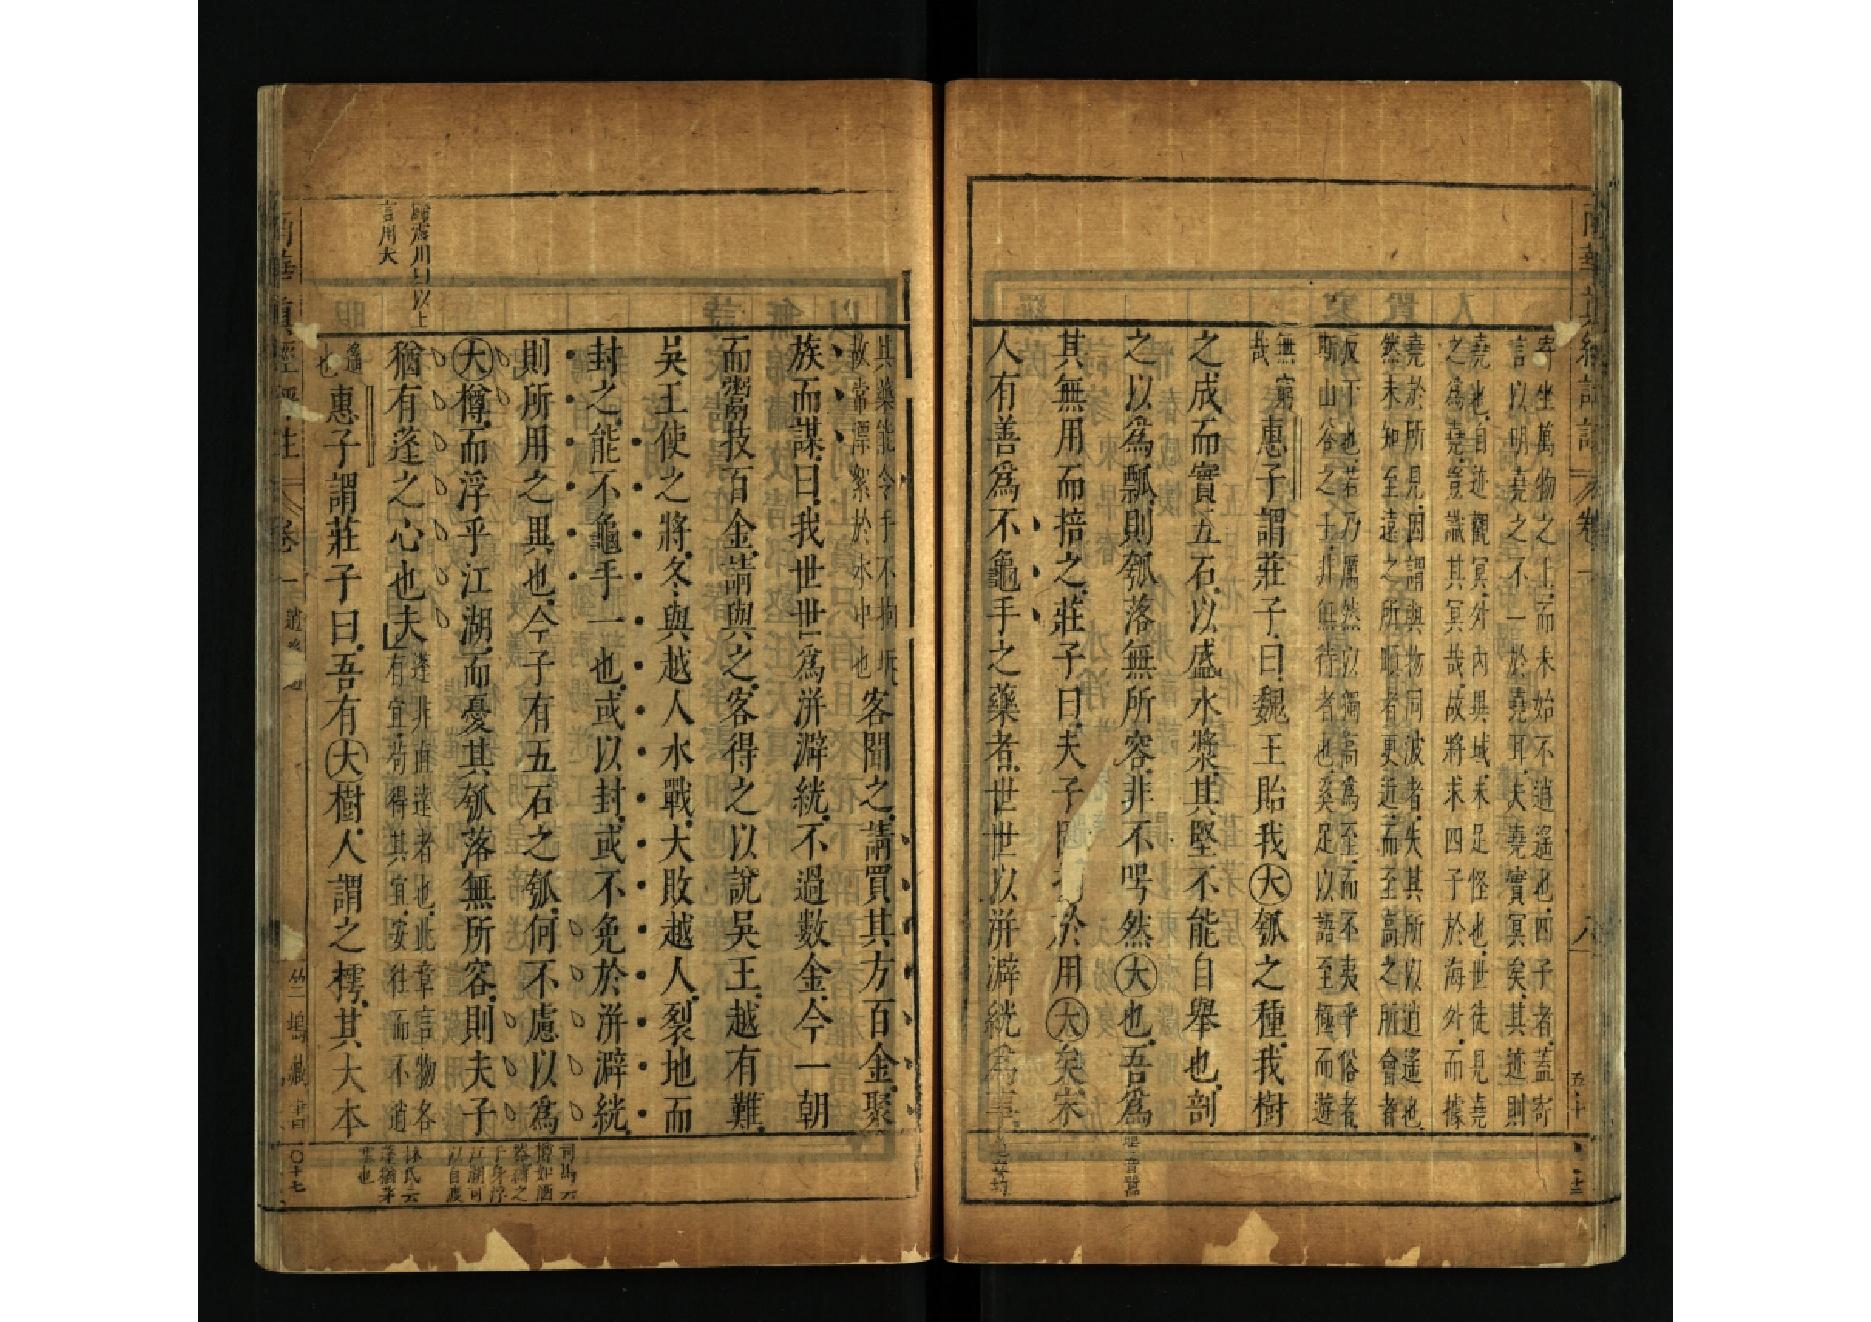 寄坐萬物之上而未始不逍遙也四子者蓋寄
言以明堯之不一於堯耳夫堯實冥矣其迹則
堯也自迹觀冥外內異域未足怪也世徒見堯
之為堯豈識其冥哉故將求四子於海外而據
堯於所見因謂與物同波者失其所以逍遙也
然未知至遠之所順者更近而至高之所會者
反下也若乃厲然以獨高為至而不夷乎俗者
斯山谷之士非無待者也奚足以語至極而遊
無窮哉
惠子謂莊子曰魏王貽我大瓠之種我樹
之成而實五石以盛水漿其堅不能自舉也剖
之以為瓢則瓠落無所容非不呺然大也吾為
其無用而掊之莊子曰夫子固拙於用大矣宋
人有善為不龜手之藥者世世以洴澼絖為事
其藥能令手不拘坼
故常漂絮於水中也
客聞之請買其方百金聚
族而謀曰我世世為洴澼絖不過數金今一朝
而鬻技百金請與之客得之以說吳王越有難
吳王使之將冬與越人水戰大敗越人裂地而
封之能不龜手一也或以封或不免於洴澼絖
則所用之異也今子有五石之瓠何不慮以為
大樽而浮乎江湖而憂其瓠落無所容則夫子
猶有蓬之心也夫
蓬非直達者也此章言物各
有宜苟得其宜安往而不逍
遙也
惠子謂莊子曰吾有大樹人謂之樗其大本
川曰以上
言用大
司馬云
樽如酒
器縛之
於身浮
江湖可
以自渡
林氏云
蓬猶茅
塞也
南華真經評註
卷一
八
南華真經評註
卷一